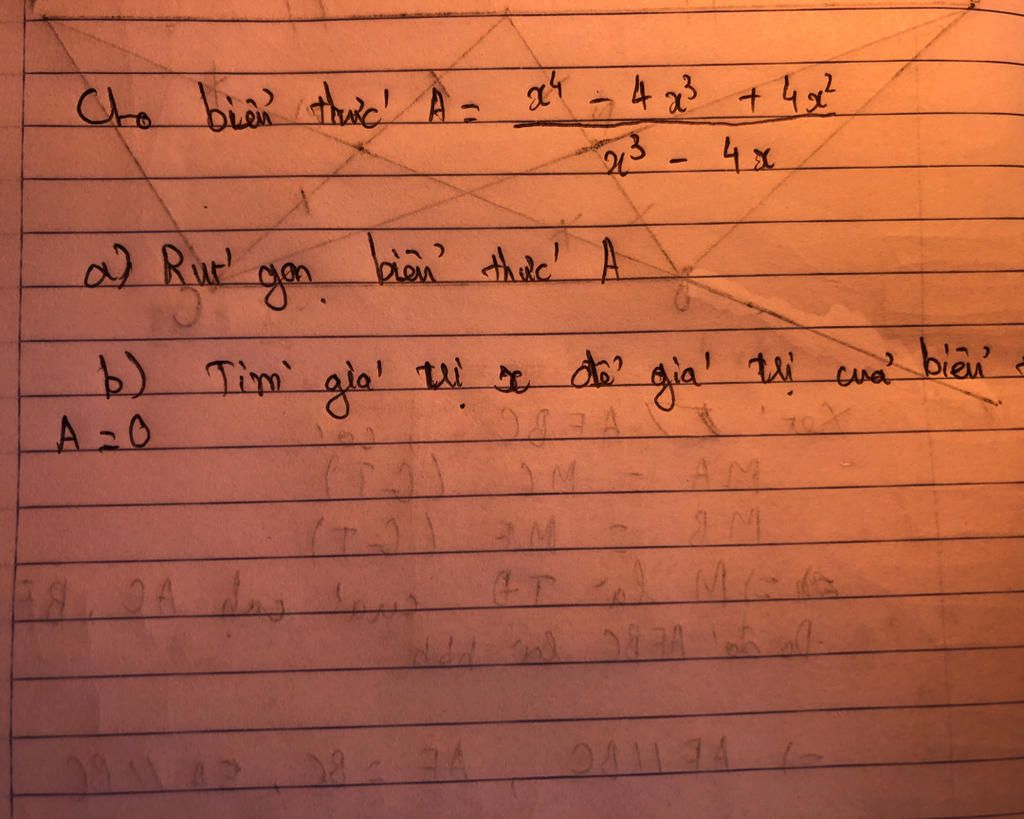 Cho biểu thức A = (x⁴ - 4x³ + 4x²) / (x³ - 4x)
a) Rút gọn biểu thức A
b) Tìm giá trị x để giá trị của biểu
A = 0